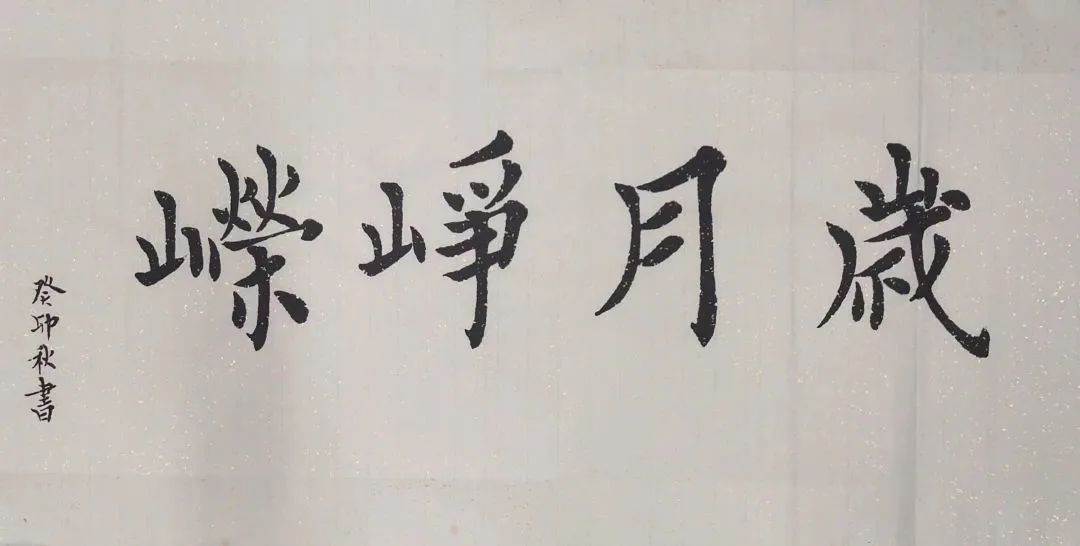 歲月崢嶸
癸卯秋書